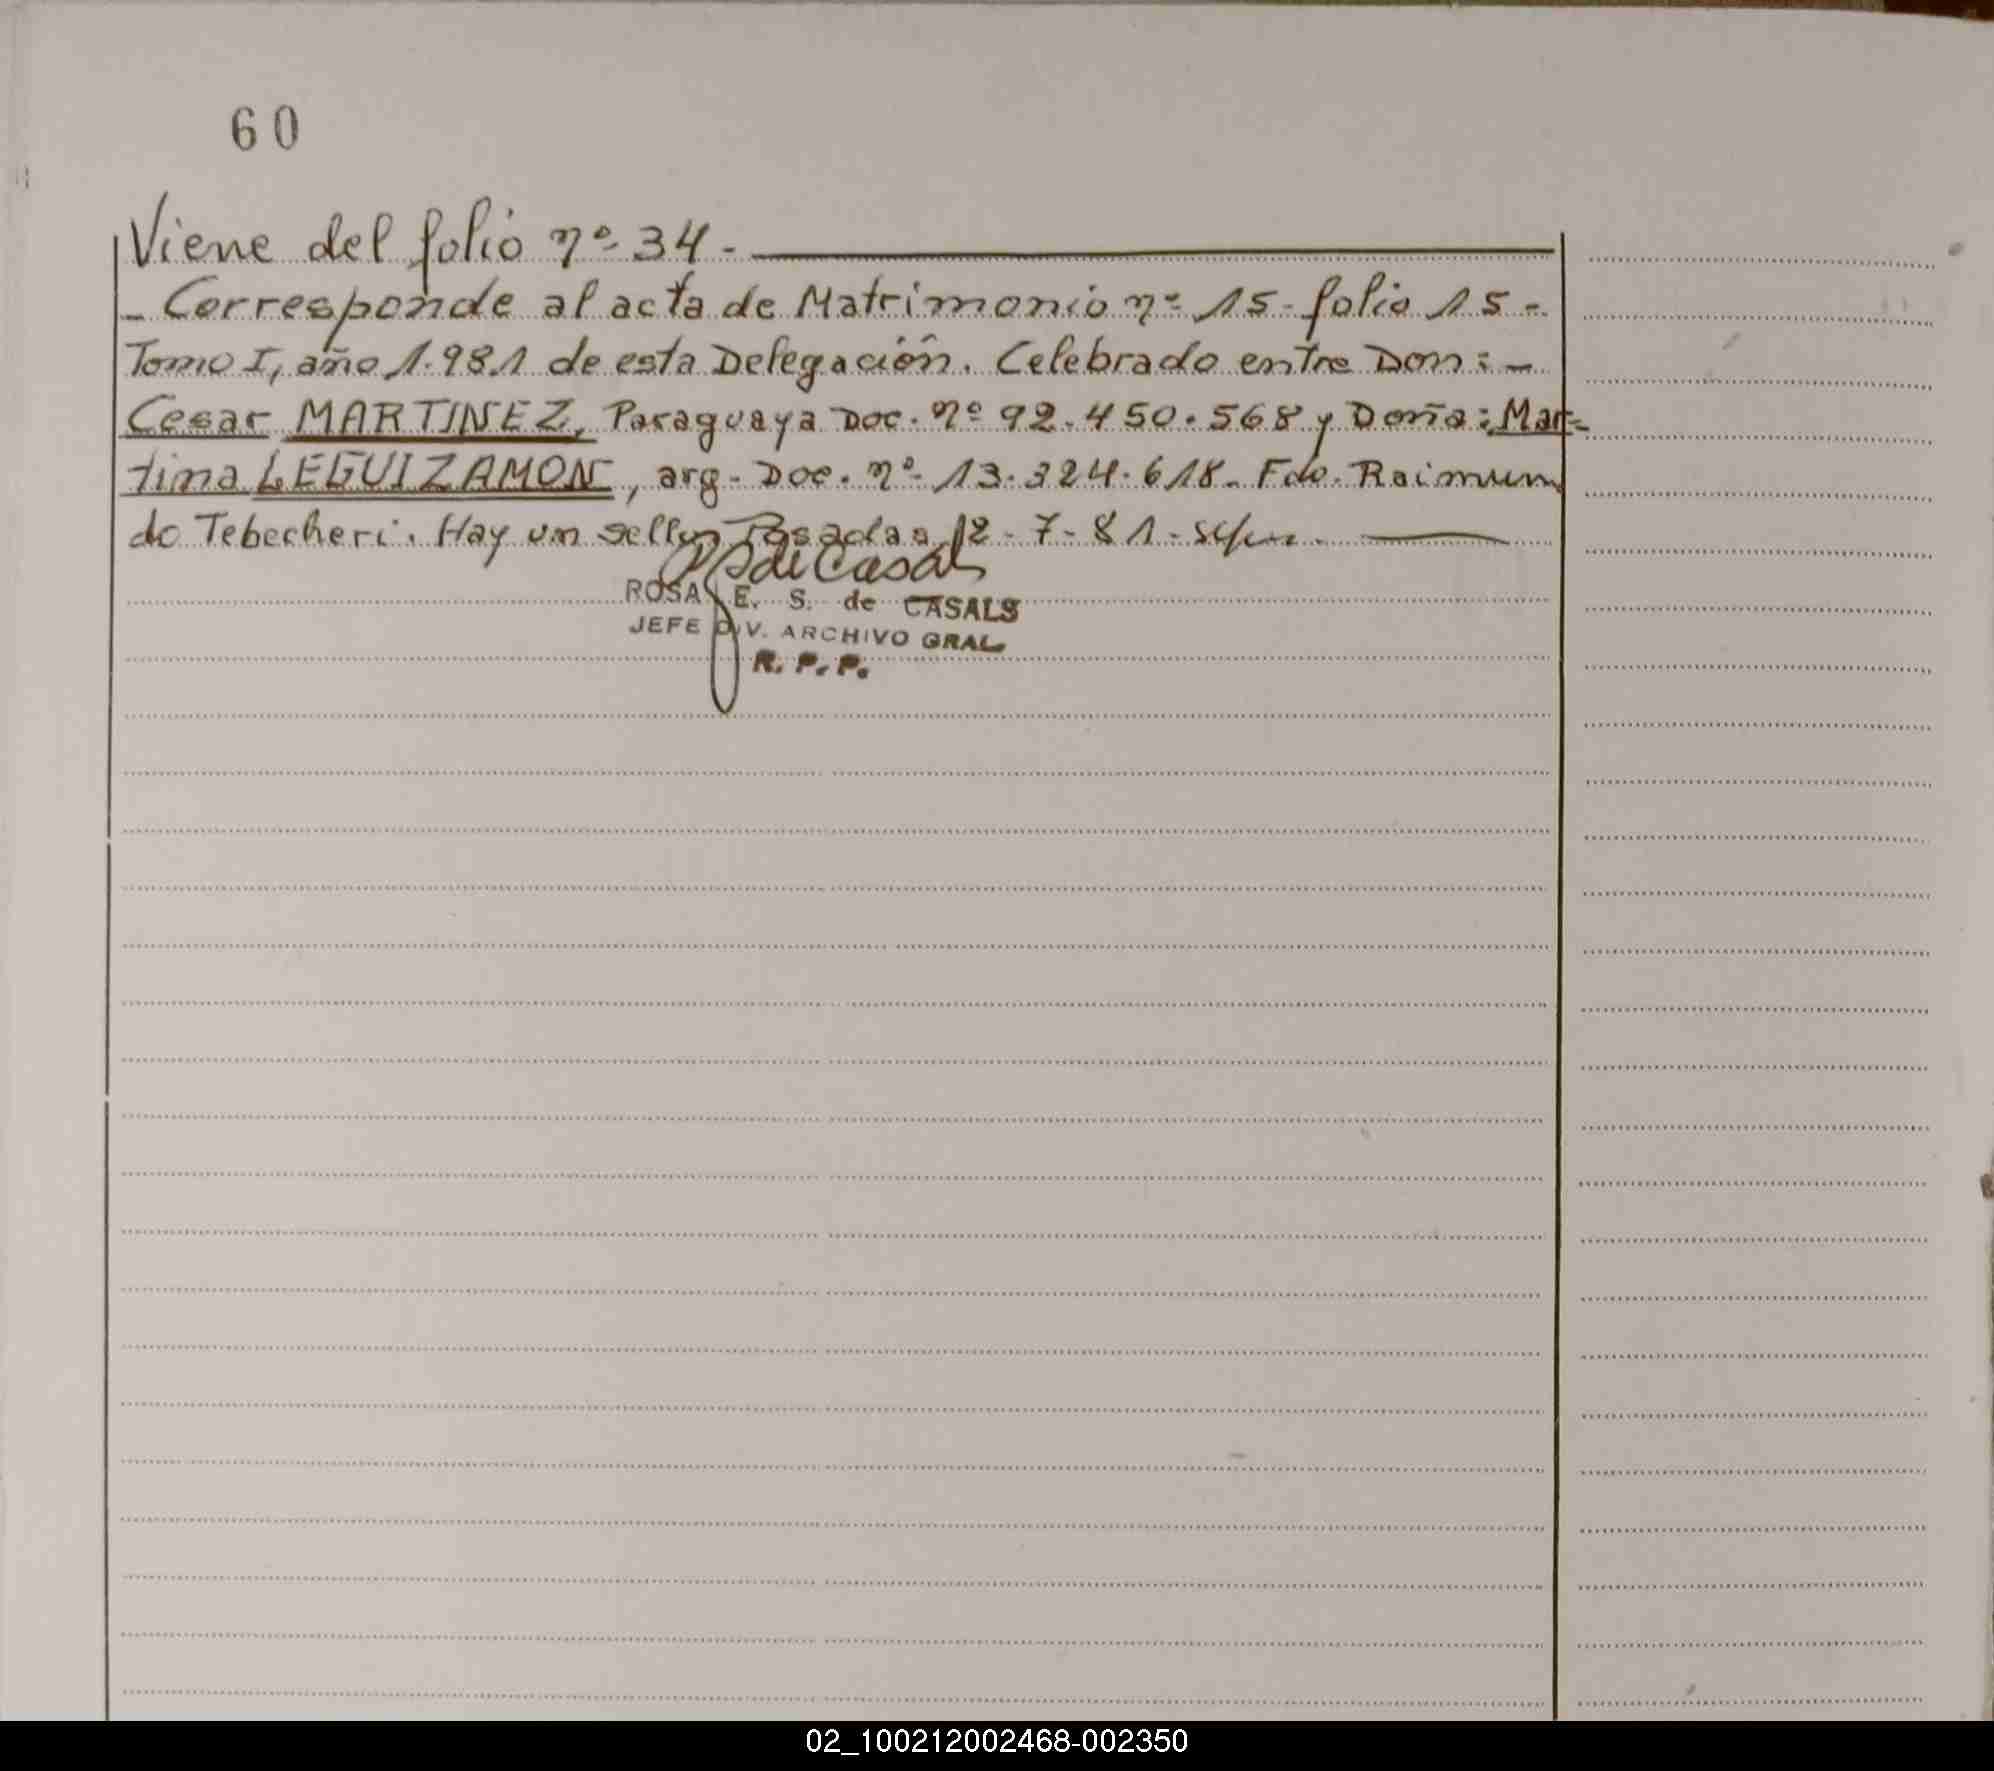 60
Viene del folio nº 34 -
- Corresponde al acta de Matrimonio nº 15 - folio 15 -
Tomo I, año 1.981 de esta Delegación. Celebrado entre Don: -
Cesar MARTINEZ, Paraguaya Doc. nº 92.450.568 y Doña: Mar=
tina LEGUIZAMON, arg- Doc. nº 13.324.618. Fdo. Raimun
do Tebecheri. Hay un sello Posadas, 12-7-81-
ROSA E. S. de CASALS
JEFE DIV. ARCHIVO GRAL.
R. P. P.
02_100212002468-002350